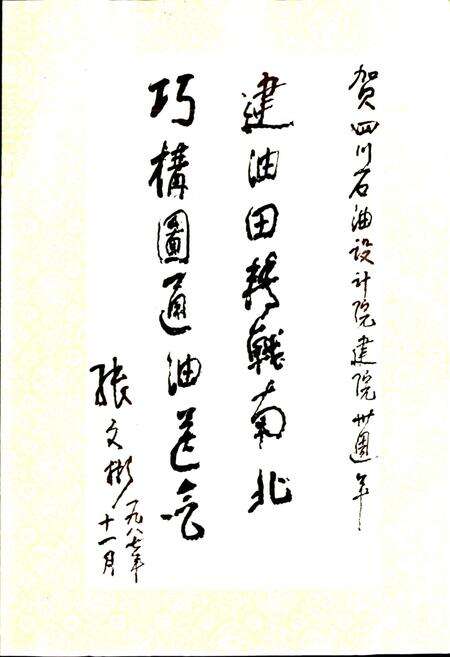 贺四川石油设计院建院卅週年
建油田轉戰南北
巧構圖通油送气
張文彬
一九八七年
十一月